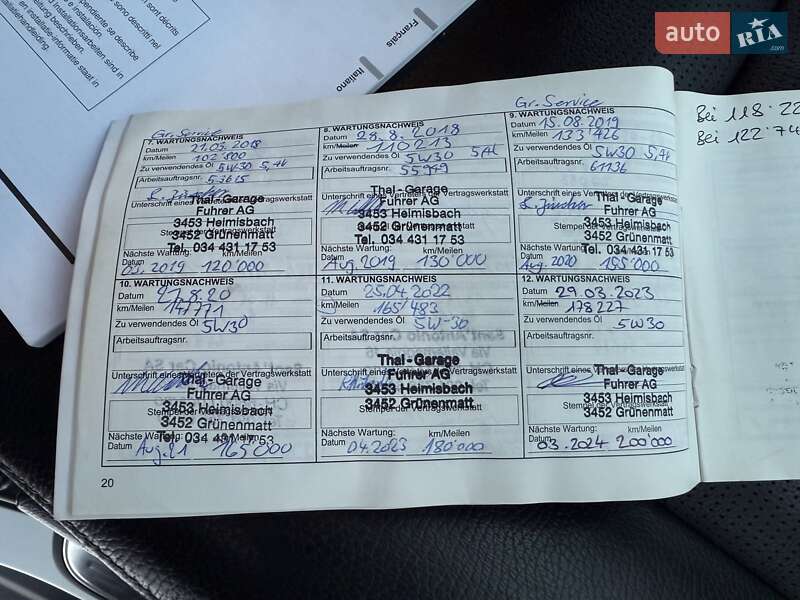 auto RIA.com
Français
Italiano
pendente se describe
e instalación.
sono descritti nel
d Installationsarbeiten sind in
leitung beschrieben.
en installatie-informatie staat in
Gr. Service
7. WARTUNGSNACHWEIS
Datum 21.03.2018
km/Meilen 102'500
Zu verwendendes Öl 5W30 5,4l
Arbeitsauftragsnr. 53615
Unterschrift eines Vertreters der Vertragswerkstatt
Thal-Garage
Fuhrer AG
3453 Heimisbach
Stempel der Vertragswerkstatt
3452 Grünenmatt
Tel. 034 431 17 53
Nächste Wartung: km/Meilen
Datum 03.2019 120'000
8. WARTUNGSNACHWEIS
Datum 28.8.2018
km/Meilen 110213
Zu verwendendes Öl 5W30 5,4l
Arbeitsauftragsnr.
Unterschrift eines Vertreters der Vertragswerkstatt
Thal-Garage
Fuhrer AG
3453 Heimisbach
Stempel der Vertragswerkstatt
3452 Grünenmatt
Tel. 034 431 17 53
Nächste Wartung: km/Meilen
Datum Aug.2019 130'000
Gr. Service
9. WARTUNGSNACHWEIS
Datum 15.08.2019
km/Meilen 133'426
Zu verwendendes Öl 5W30 5,4l
Arbeitsauftragsnr. 61136
Unterschrift eines Vertreters der Vertragswerkstatt
Thal-Garage
Fuhrer AG
3453 Heimisbach
Stempel der Vertragswerkstatt
3452 Grünenmatt
Tel. 034 431 17 53
Nächste Wartung: km/Meilen
Datum Aug 2020
10. WARTUNGSNACHWEIS
Datum
km/Meilen
Zu verwendendes Öl 5W30
Arbeitsauftragsnr.
Unterschrift eines Vertreters der Vertragswerkstatt
Thal-Garage
Fuhrer AG
3453 Heimisbach
Stempel der Vertragswerkstatt
3452 Grünenmatt
Tel. 034 431 17 53
Nächste Wartung: km/Meilen
Datum Aug.21 165'000
11. WARTUNGSNACHWEIS
Datum 25.04.2022
km/Meilen 165'483
Zu verwendendes Öl 5W-30
Arbeitsauftragsnr.
Unterschrift eines Vertreters der Vertragswerkstatt
Thal-Garage
Fuhrer AG
3453 Heimisbach
3452 Grünenmatt
Stempel der Vertragswerkstatt
Nächste Wartung: km/Meilen
Datum 04.2023 180'000
12. WARTUNGSNACHWEIS
Datum 29.03.2023
km/Meilen 178227
Zu verwendendes Öl 5W30
Arbeitsauftragsnr.
Unterschrift eines Vertreters der Vertragswerkstatt
Thal-Garage
Fuhrer AG
3453 Heimisbach
Stempel der Vertragswerkstatt
3452 Grünenmatt
Nächste Wartung: km/Meilen
Datum 03.2024 200'000
20
Bei 118'22
Bei 122'74